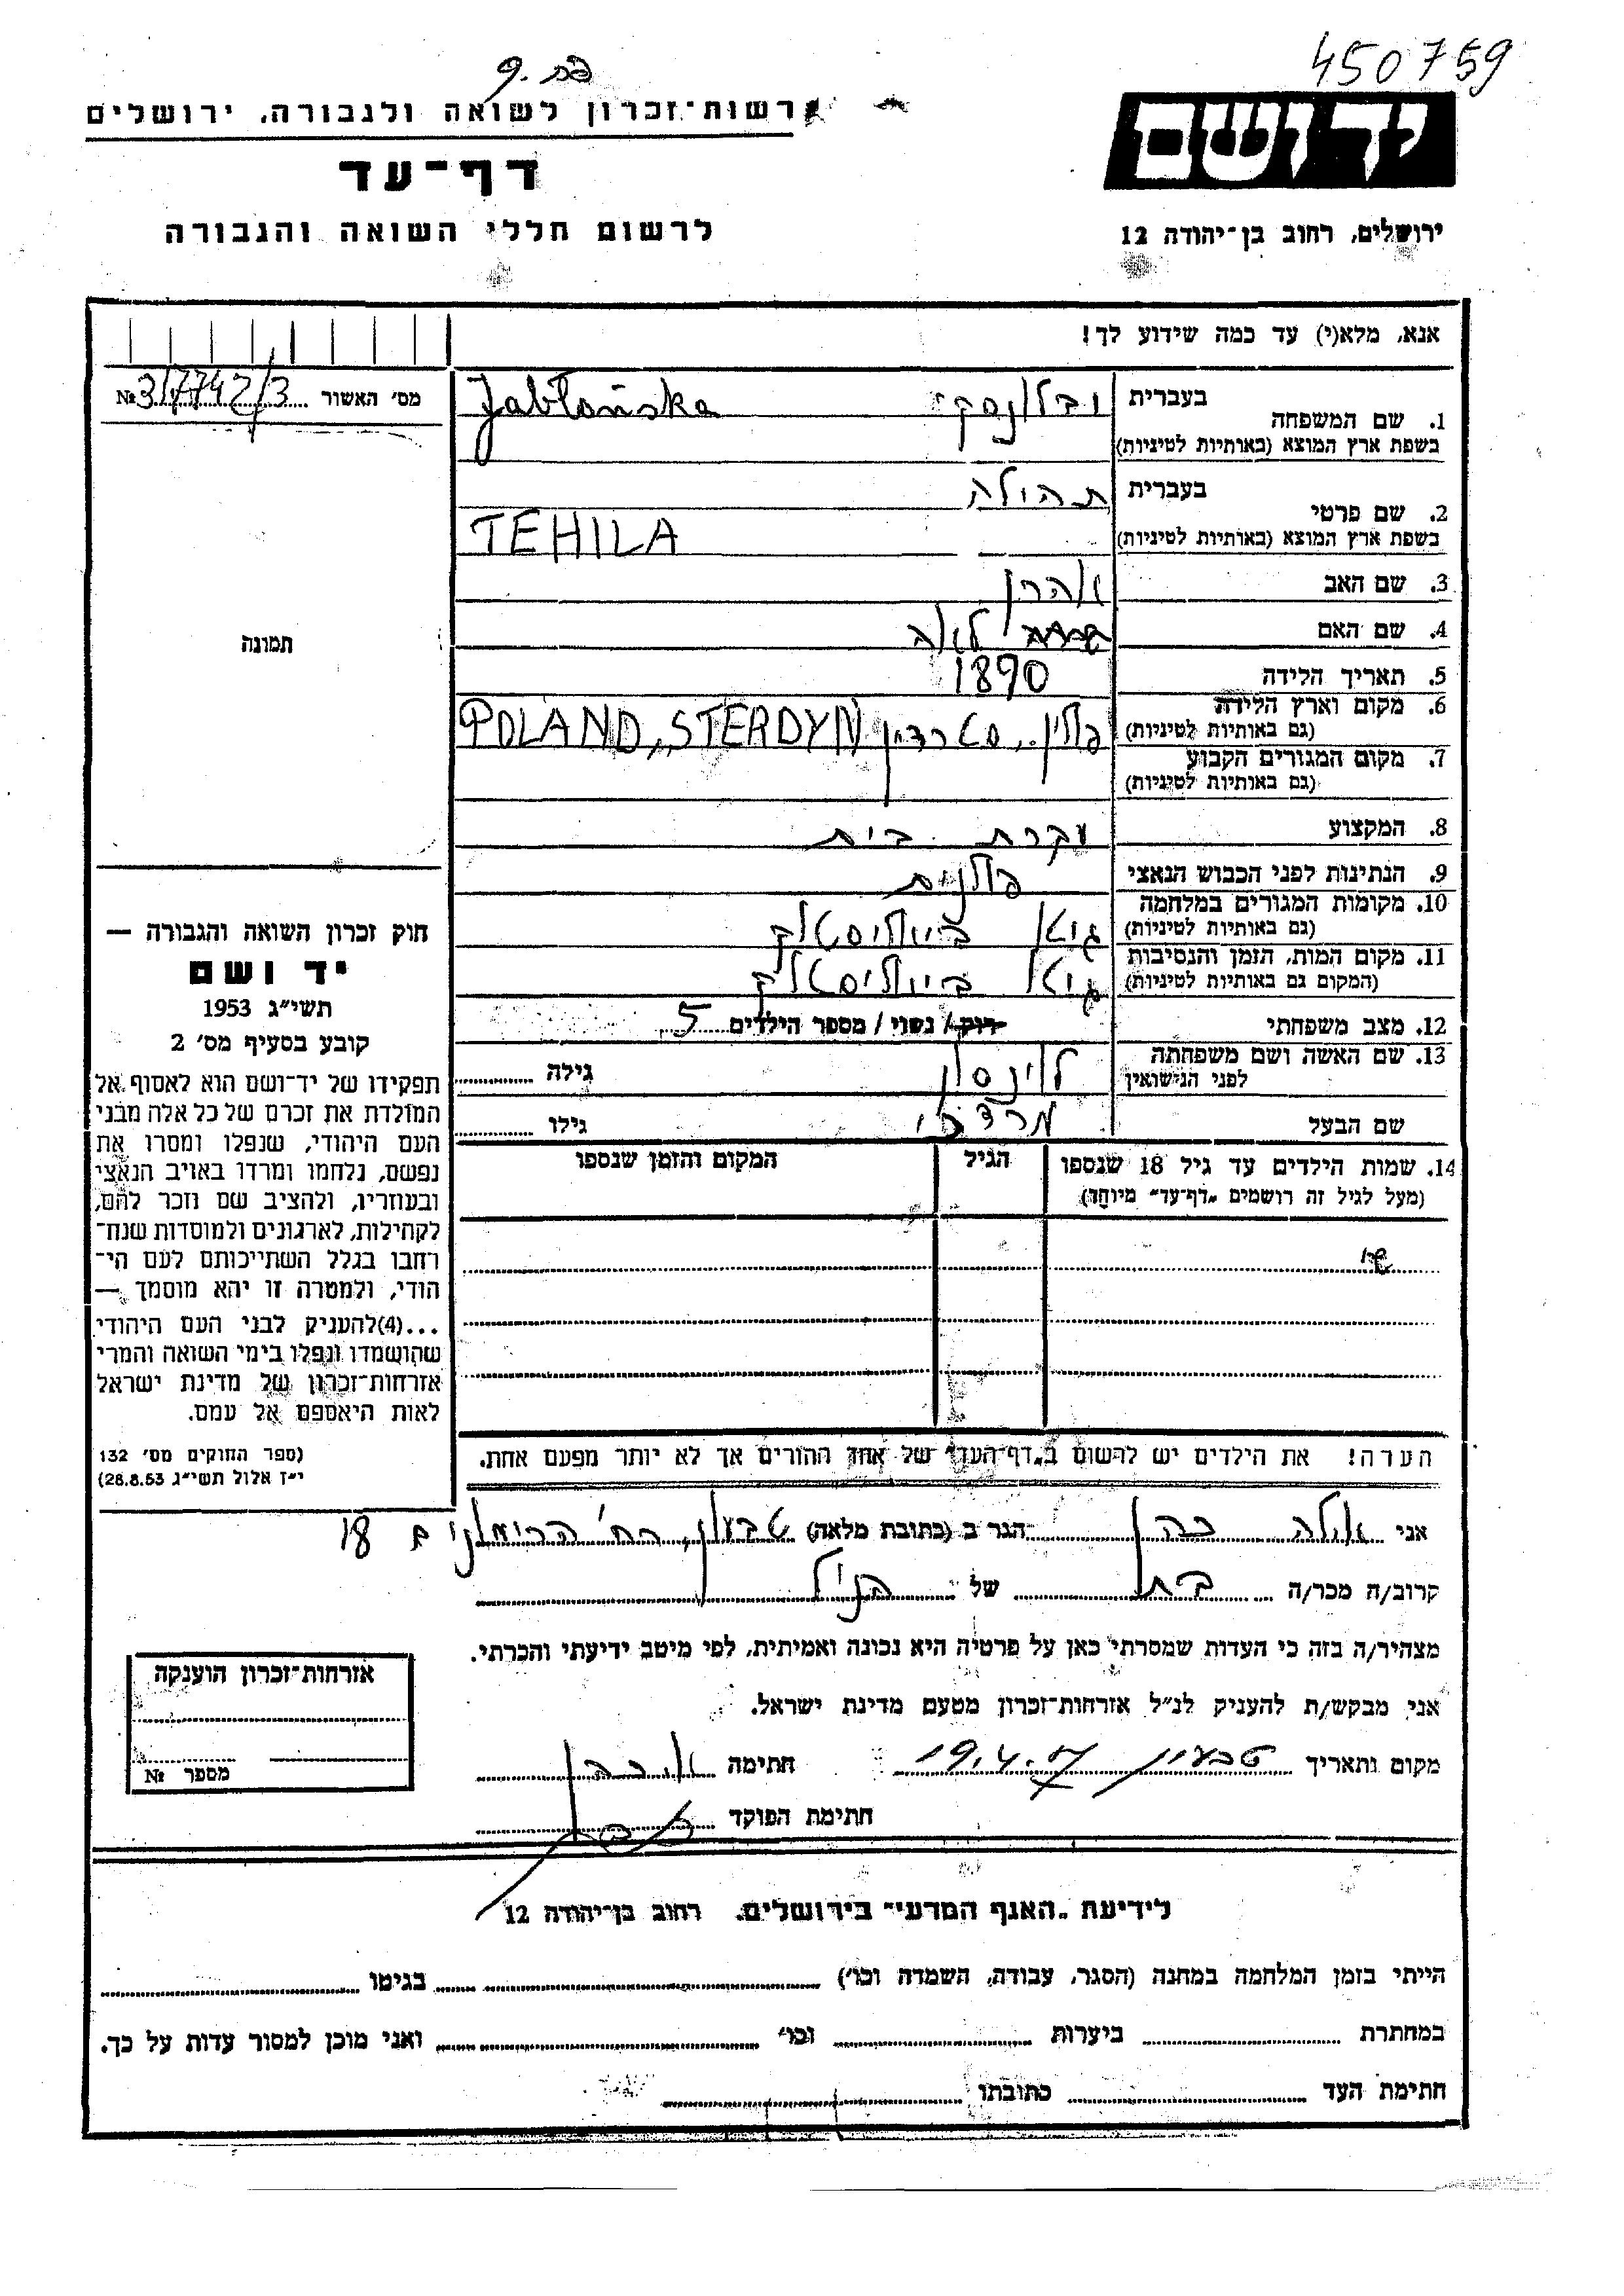 450759
פת. 9
רשות־זכרון לשואה ולגבורה, ירושלים
יד ושם
דף־עד
לרשום חללי השואה והגבורה
ירושלים, רחוב בן־יהודה 12
אנא, מלא(י) עד כמה שידוע לך!
מס׳ האשור 317742/3 №
1. שם המשפחה בעברית יבלונסקי Jabłońska
בשפת ארץ המוצא (באותיות לטיניות)
2. שם פרטי בעברית תהילה
בשפת ארץ המוצא (באותיות לטיניות) TEHILA
3. שם האב אהרן
4. שם האם לאה
5. תאריך הלידה 1890
6. מקום וארץ הלידה (גם באותיות לטיניות) פולין, סטרדין POLAND, STERDYN
7. מקום המגורים הקבוע (גם באותיות לטיניות)
8. המקצוע עקרת בית
9. הנתינות לפני הכבוש הנאצי פולנית
10. מקומות המגורים במלחמה (גם באותיות לטיניות) גיטו ביאליסטוק
11. מקום המות, הזמן והנסיבות (המקום גם באותיות לטיניות) גיטו ביאליסטוק
12. מצב משפחתי רוק / נשוי / מספר הילדים 5
13. שם האשה ושם משפחתה לפני הנישואין לוינסון גילה
שם הבעל מרדכי גילו
14. שמות הילדים עד גיל 18 שנספו הגיל המקום והזמן שנספו
(מעל לגיל זה רושמים „דף־עד״ מיוחד)
הערה! את הילדים יש לרשום ב„דף־העד״ של אחד ההורים אך לא יותר מפעם אחת.
תמונה
חוק זכרון השואה והגבורה —
יד ושם
תשי״ג 1953
קובע בסעיף מס׳ 2
תפקידו של יד־ושם הוא לאסוף אל
המולדת את זכרם של כל אלה מבני
העם היהודי, שנפלו ומסרו את
נפשם, נלחמו ומרדו באויב הנאצי
ובעוזריו, ולהציב שם וזכר להם,
לקהילות, לארגונים ולמוסדות שנח־
רבו בגלל השתייכותם לעם הי־
הודי, ולמטרה זו יהא מוסמך —
...(4) להעניק לבני העם היהודי
שהושמדו ונפלו בימי השואה והמרי
אזרחות־זכרון של מדינת ישראל
לאות היאספם אל עמם.
(ספר החוקים מס׳ 132
י״ז אלול תשי״ג 28.8.53)
אני אילה כהן הגר ב (כתובת מלאה) טבעון, רח׳ 18
קרוב/ה מכר/ה בת של הנ״ל
מצהיר/ה בזה כי העדות שמסרתי כאן על פרטיה היא נכונה ואמיתית, לפי מיטב ידיעתי והכרתי.
אני מבקש/ת להעניק לנ״ל אזרחות־זכרון מטעם מדינת ישראל.
מקום ותאריך טבעון 19.4.57 חתימה א. כהן
חתימת הפוקד
אזרחות־זכרון הוענקה
מספר №
לידיעת „האגף המדעי״ בירושלים, רחוב בן־יהודה 12
הייתי בזמן המלחמה במחנה (הסגר, עבודה, השמדה וכו׳) בגיטו
במחתרת ביערות וכו׳ ואני מוכן למסור עדות על כך.
חתימת העד כתובתו